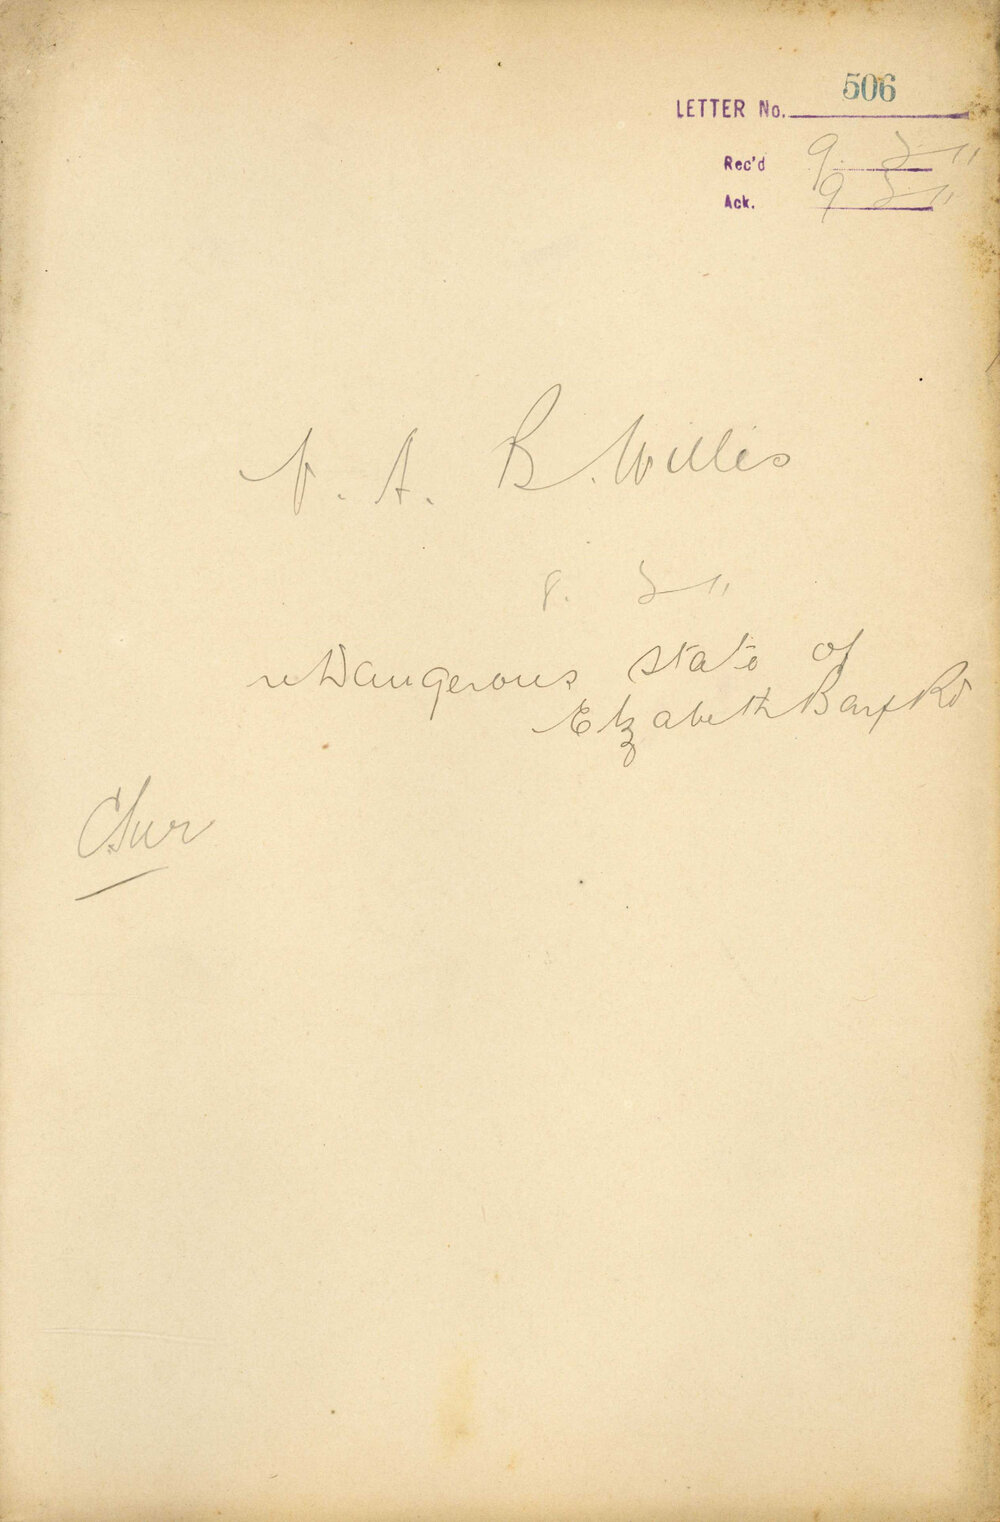 506
LETTER No.
Rec'd 9 3 11
Ack. 9 3 11
A. B. Willis
8. 3 11
re Dangerous state of
Elizabeth Bay Rd